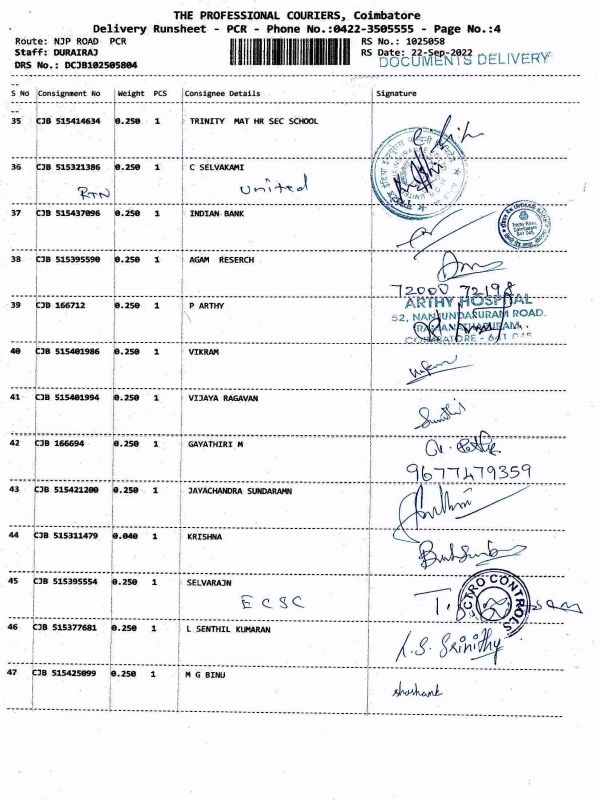 THE PROFESSIONAL COURIERS, Coimbatore
Delivery Runsheet - PCR - Phone No.:0422-3505555 - Page No.:4
Route: NJP ROAD PCR
RS No.: 1025058
Staff: DURAIRAJ
RS Date: 22-Sep-2022
DOCUMENTS DELIVERY
DRS No.: DCJB102505804
S No Consignment No Weight PCS Consignee Details Signature
35 CJB 515414634 0.250 1 TRINITY MAT HR SEC SCHOOL
36 CJB 515321386 0.250 1 C SELVAKAMI
RTN United
37 CJB 515437096 0.250 1 INDIAN BANK
38 CJB 515395590 0.250 1 AGAM RESERCH
72000 72198
39 CJB 166712 0.250 1 P ARTHY
ARTHY HOSPITAL
52, NANJUNDAPURAM ROAD.
RAMANATHAPURAM,
COIMBATORE - 641 045
40 CJB 515401986 0.250 1 VIKRAM
41 CJB 515401994 0.250 1 VIJAYA RAGAVAN
42 CJB 166694 0.250 1 GAYATHIRI M
9677479359
43 CJB 515421200 0.250 1 JAYACHANDRA SUNDARAMN
44 CJB 515311479 0.040 1 KRISHNA
45 CJB 515395554 0.250 1 SELVARAJN
ECSC
CTRO CONTROLS
46 CJB 515377681 0.250 1 L SENTHIL KUMARAN
L.S. Srinithy
47 CJB 515425099 0.250 1 M G BINU
shashank